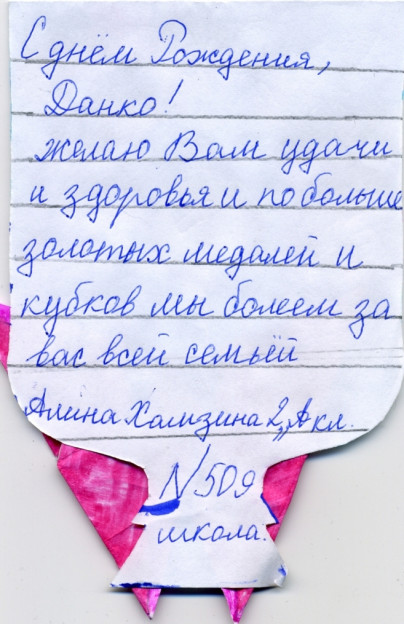 С днём Рождения,
Данко!
желаю Вам удачи
и здоровья и побольше
золотых медалей и
кубков мы болеем за
вас всей семьёй
Алина Хамзина 2 „А кл.
N 509
школа.